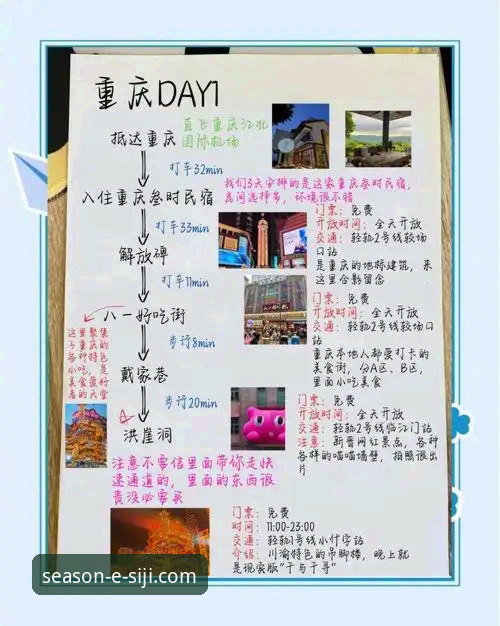 重庆DAY1
直飞重庆江北
国际机场
抵达重庆
打车32min
入住重庆叁时民宿
我们3天安排的是这家重庆叁时民宿,
房间选择多, 环境很不错
打车33min
解放碑
门票: 免费
开放时间: 全天开放
交通: 轻轨2号线较场
口站
是重庆的地标建筑, 来
这里合影留念
打车11min
八一好吃街
这里聚集
了重庆的
各种特色
小吃, 是
美食爱好
者的天堂
门票: 免费
开放时间: 全天开放
交通: 轻轨2号线较场口
站
重庆本地人都爱打卡的
美食街, 分A区、B区,
里面小吃美食
步行8min
戴家巷
门票: 免费
开放时间: 全天开放
交通: 轻轨2号线临江门站
注意: 新晋网红景点, 各种
各样的喵喵墙壁, 拍照很出
片
步行20min
洪崖洞
注意不要信里面带你走快
速通道的, 里面的东西很
贵没必要买
门票: 免费
时间: 11:00-23:00
交通: 轻轨1号线小什字站
介绍: 川渝特色的吊脚楼, 晚上就
是现实版"千与千寻"
season-e-siji.com